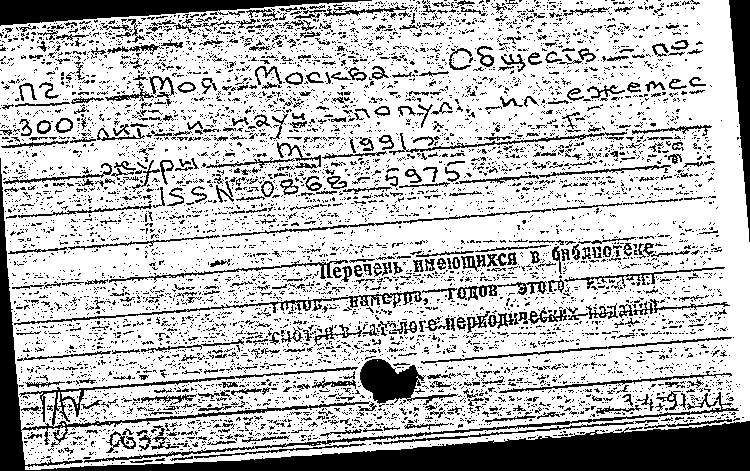 П2 Моя Москва. Обществ. – по
300 лит. и науч. – попул. ил. ежемес
журн. – М., 1991–
ISSN 0868-5975.
Перечень имеющихся в библиотеке
томов, номеров, годов этого издания
смотри в каталоге периодических изданий
10 0633 3.4.91 11